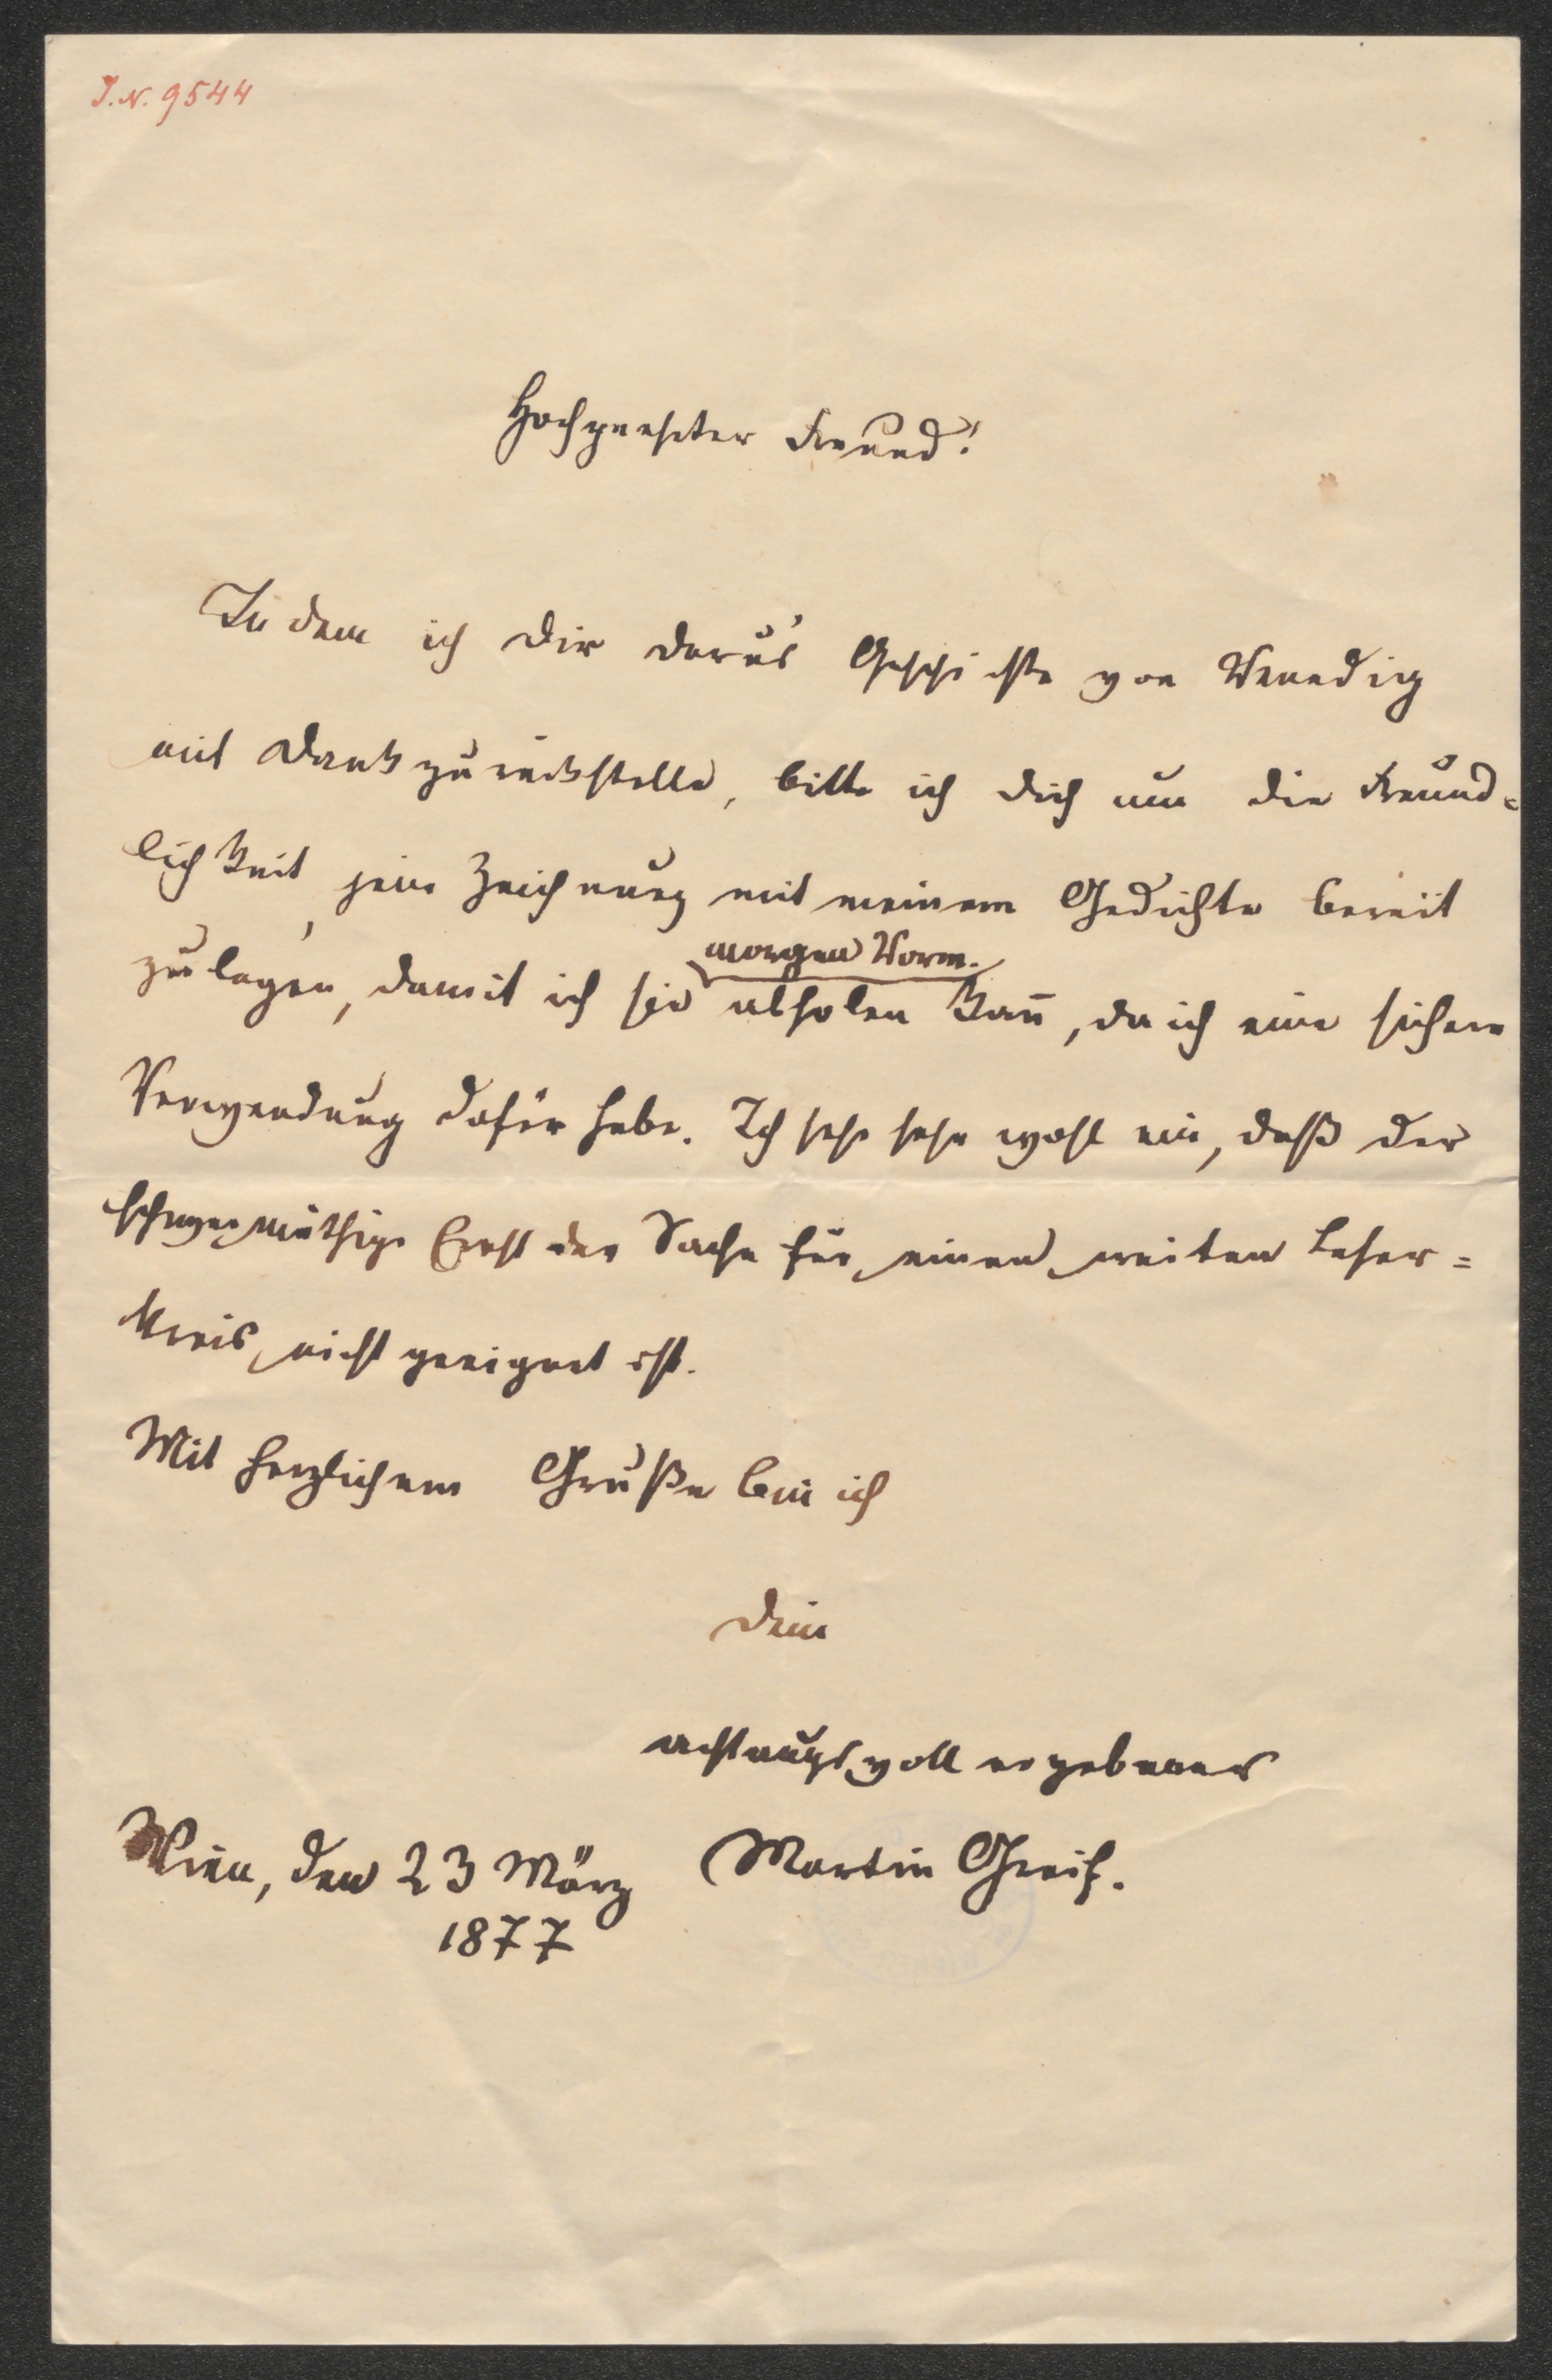 J.N. 9544
Hochgeehrter Freund!
Indem ich Dir Daru's Geschichte von Venedig
mit Dank zurückstelle, bitte ich Dich um die Freund=
lichkeit, jene Zeichnung mit meinem Gedichte bereit
morgen Vorm.
zu legen, damit ich sie abholen kan̄, da ich eine sichere
Verwendung dafür habe. Ich sehe sehr wohl ein, daß der
schwermüthige Ernst der Sache für einen weiten Leser=
kreis nicht geeignet ist.
Mit herzlichem Gruße bin ich
Dein
achtungsvoll ergebener
Wien, den 23 März Martin Greif.
1877